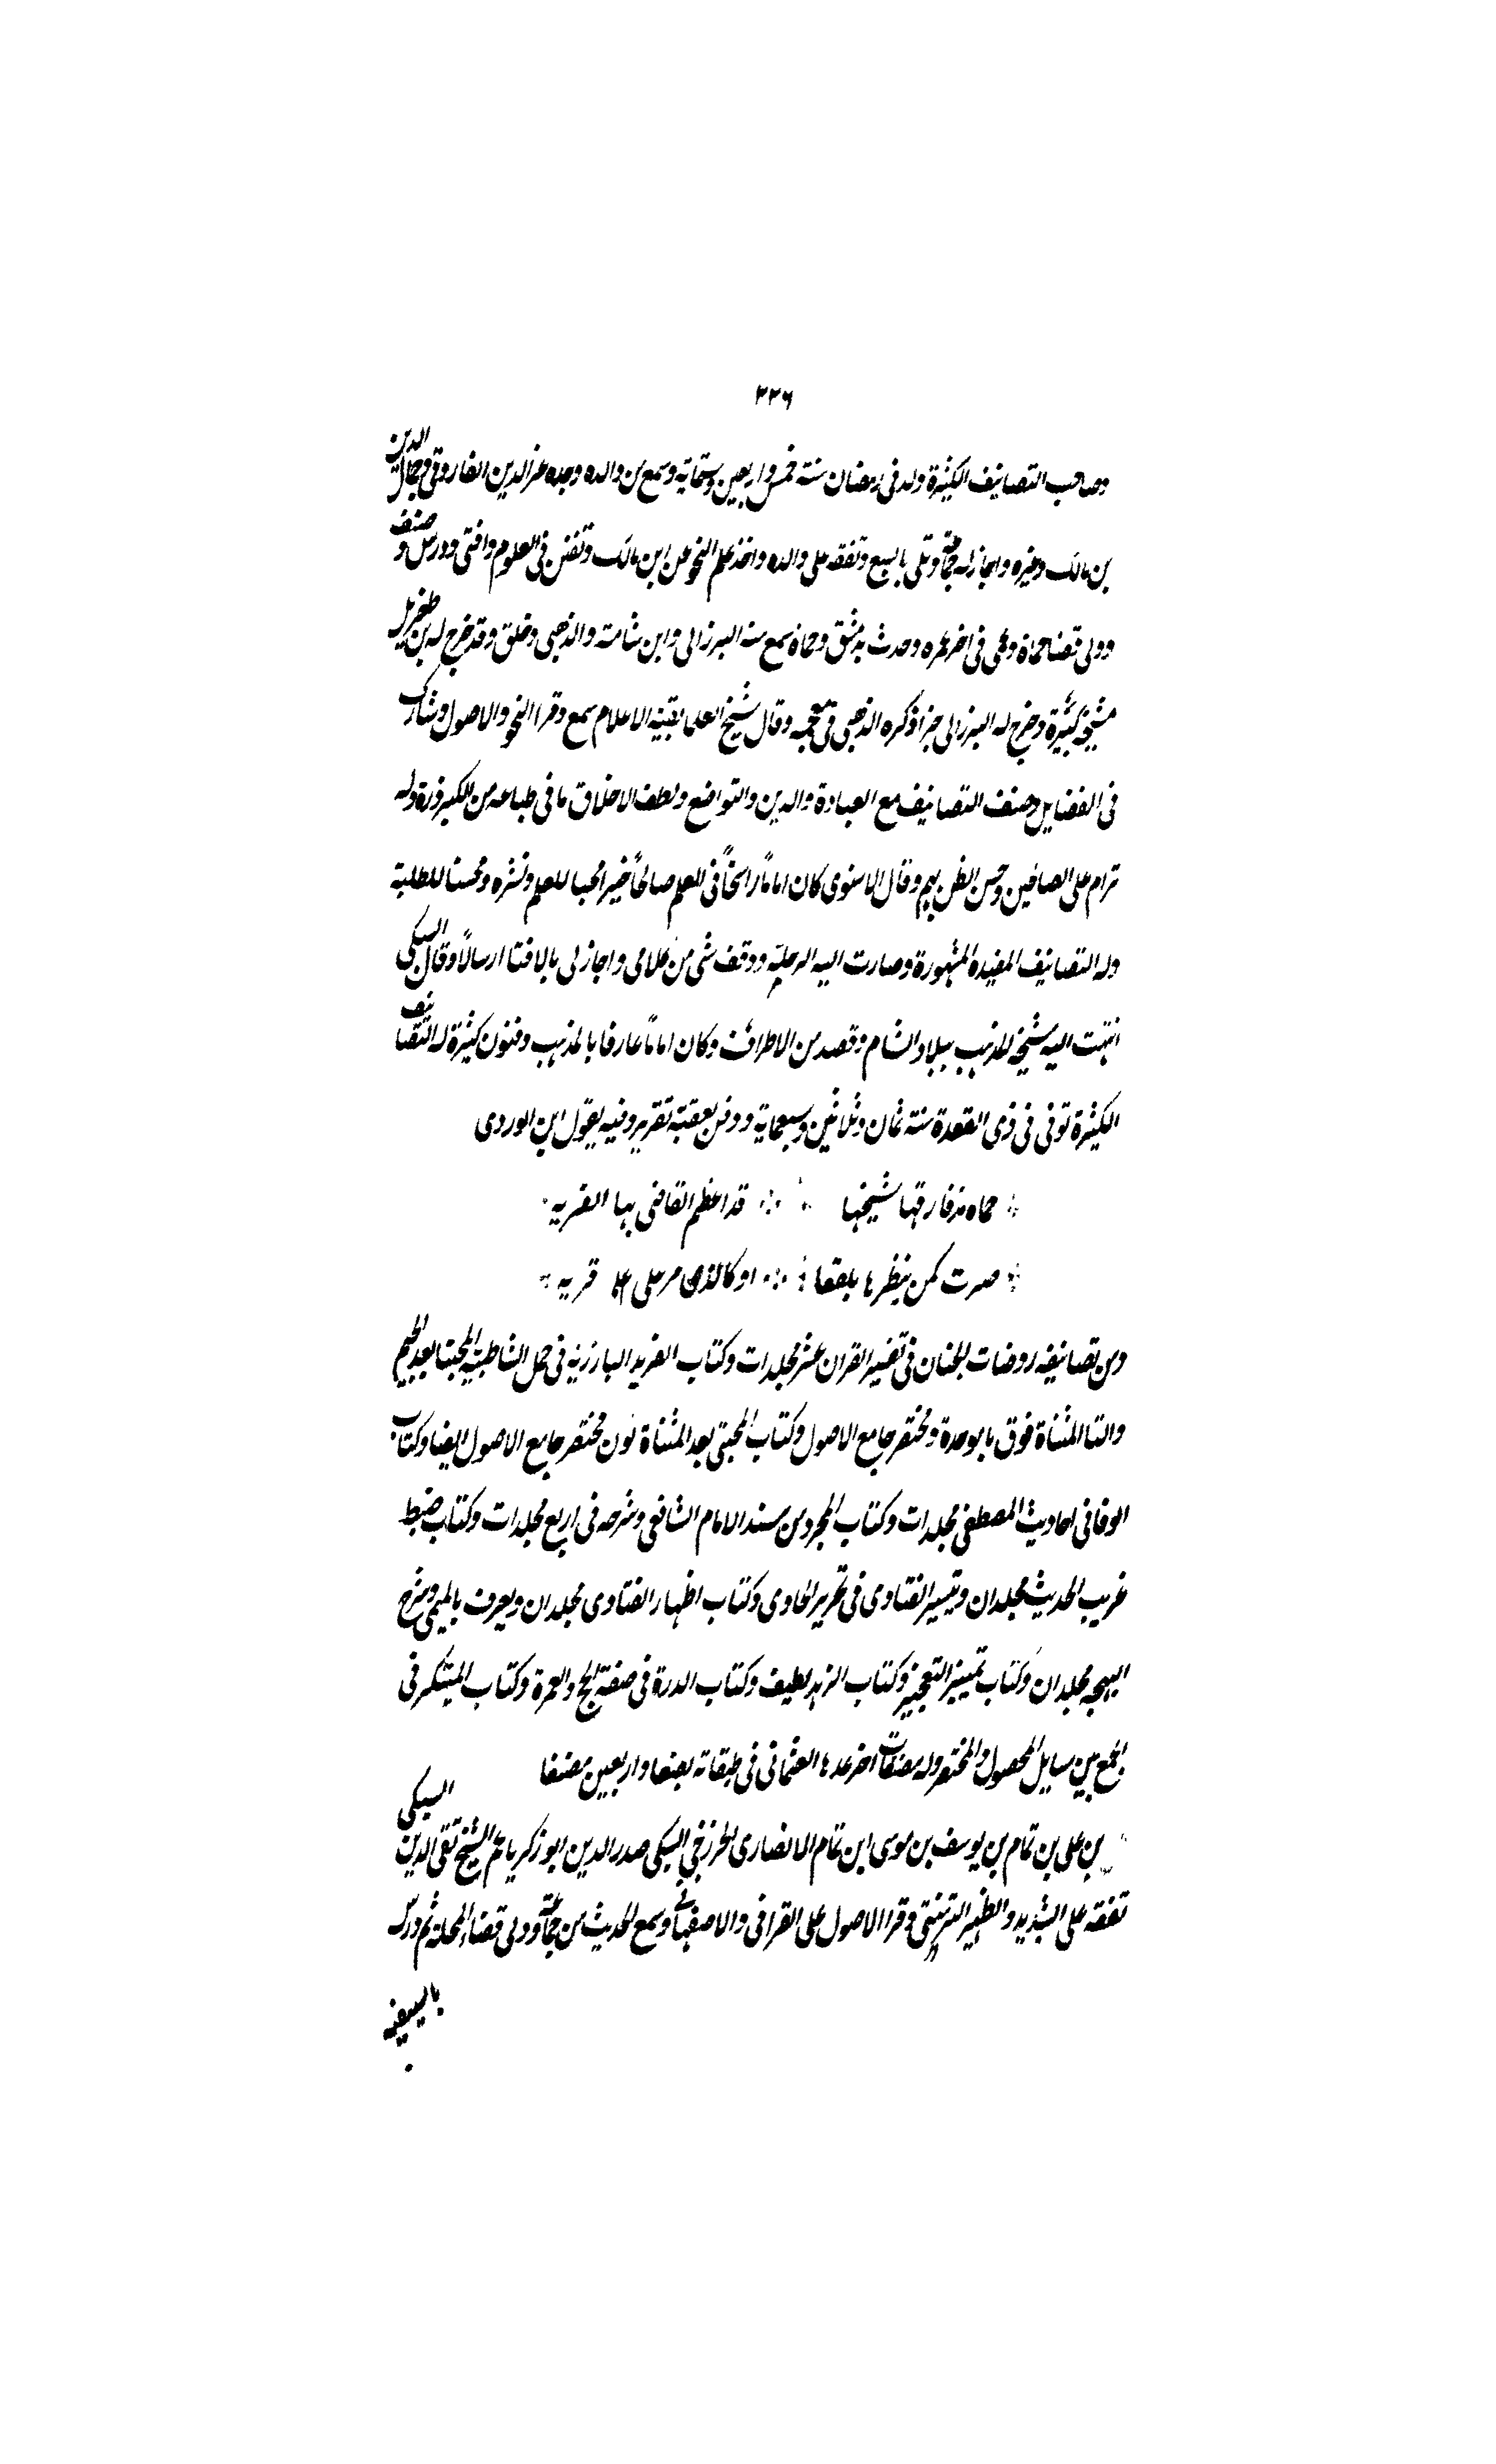 ٣٣٦
وصاحب التصانيف الكثيرة ولد في رمضان سنة خمس واربعين وستماية وسمع من والده وجده عز الدين الفاروثي وجمال الدين
بن مالك وغيره واجاز له جماعة وتلى بالسبع وتفقه على والده واخذ علم النحو عن ابن مالك وتفنن في العلوم وافتى ودرس وصنف
وولى قضا حماة وعمى في اخر عمره وحدث بدمشق وحماة سمع منه البرزالى وابن شامة والذهبى وخلق وقد خرج له بن طغريل
مشيخة كبيرة وخرج له البرزالى جزأ ذكره الذهبى في معجمه وقال شيخ العلما بقية الاعلام سمع وقرا النحو والاصول وشارك
في الفضايل وصنف التصانيف مع العبادة والدين والتواضع ولطف الاخلاق ما في طباعه من الكبر ذرة وله
ترام على الصالحين وحسن الظن بهم وقال الاسنوى كان اماماً راسخاً في العلم صالحاً خيرا محبا للعلم ونشره ومحسنا للطلبة
وله التصانيف المفيدة المشهورة وصارت اليه الرحلة ووقف شى من كلامى واجاز لى بالافتا ارسالاً وقال السبكى
انتهت اليه مشيخة المذهب ببلاد الشام وقصد من الاطراف وكان اماماً عارفا بالمذهب وفنون كثيرة له التصانيف
الكثيرة توفى في ذى القعدة سنة ثمان وثلاثين وسبعماية ودفن بعقبة نقرين وفيه يقول ابن الوردى
حماه مذ فارقها شيخها قد اعظم القاضى بها الفريه
صرت كمن ينظرها بلقعا او كالذى مر على قريه
ومن تصانيفه روضات الجنان في تفسير القران عشر مجلدات وكتاب الفريدة البارزية في حل الشاطبية المجتبا بعد الجيم
والتا المثناة فوق با موحدة ومختصر جامع الاصول وكتاب المجتنى بعد المثناة نون مختصر جامع الاصول ايضا وكتاب
الوفا في احاديث المصطفى مجلدات وكتاب المجرد من مسند الامام الشافعى وشرحه في اربع مجلدات وكتاب ضبط
غريب الحديث مجلدان وتيسير الفتاوى في تحرير الحاوى وكتاب اظهار الفتاوى مجلدان ويعرف بالميمى وشرح
البهجه مجلدان وكتاب تمييز التعجيز وكتاب الزبد لطيف وكتاب الدرة في صفة الحج والعمرة وكتاب المبتكر في
الجمع بين مسايل المحصول والمختصر وله مصنفات اخر عدها العثمانى في طبقاته بضعا واربعين مصنفا
بن على بن تمام بن يوسف بن موسى ابن تمام الانصارى الخزرجى السبكى صدر الدين ابو زكريا عم الشيخ تقى الدين السبكى
تفقه على السديد والظهير التزمنتى وقرا الاصول على القرافى والاصفهانى وسمع الحديث من جماعة وولى قضاء المحلة ثم درس
بالسيفية